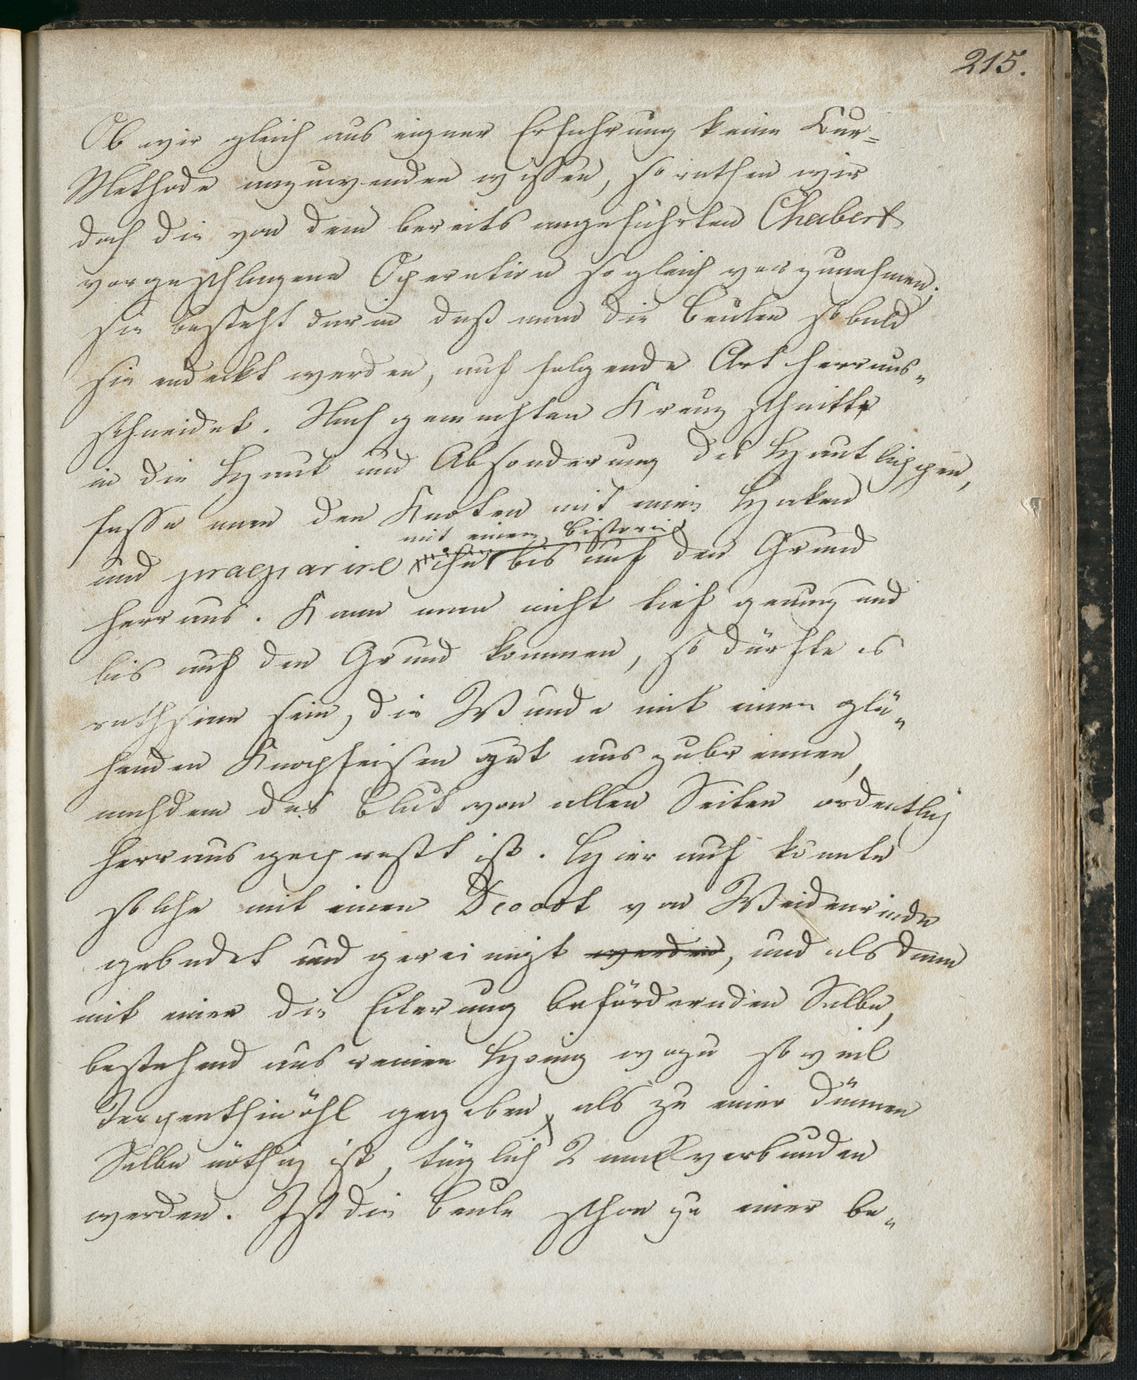 215.
Ob wir gleich aus eigner Erfahrung keine Kur=
Methode anzuwenden wißen, so rathen wir
doch die von dem bereits angeführten Chabert
vorgeschlagene Operation sogleich vorzunehmen;
sie besteht darin daß man die Beulen sobald
sie endekt werden, auf folgende Art herraus„
schneidet. Nach gemachten Kreuzschnitte
in die Haut und Absonderung der Hautlippen,
fasse man den Knoten mit einen Haken
mit einen Bistorie
und praeparire ihn bis auf den Grund
herraus. Kann man nicht tief genug und
bis auf den Grund kommen, so dürfte es
rathsam sein, die Wunde mit einen glü„
henden Knopfeisen gut auszubrennen,
nachdem das Blut von allen Seiten ordentlich
herraus gepresst ist. Hierauf könnte
solche mit einen Decoct von Weidenrinde
gebadet und gereinigt werden, und alsdann
mit einer die Eiterung befördernden Salbe,
bestehend aus reinen Honig wozu soviel
Terpenthinöhl gegeben, als zu einer dünnen
Salbe nöthig ist, täglich 2 mal verbunden
werden. Ist die Beule schon zu einer be„